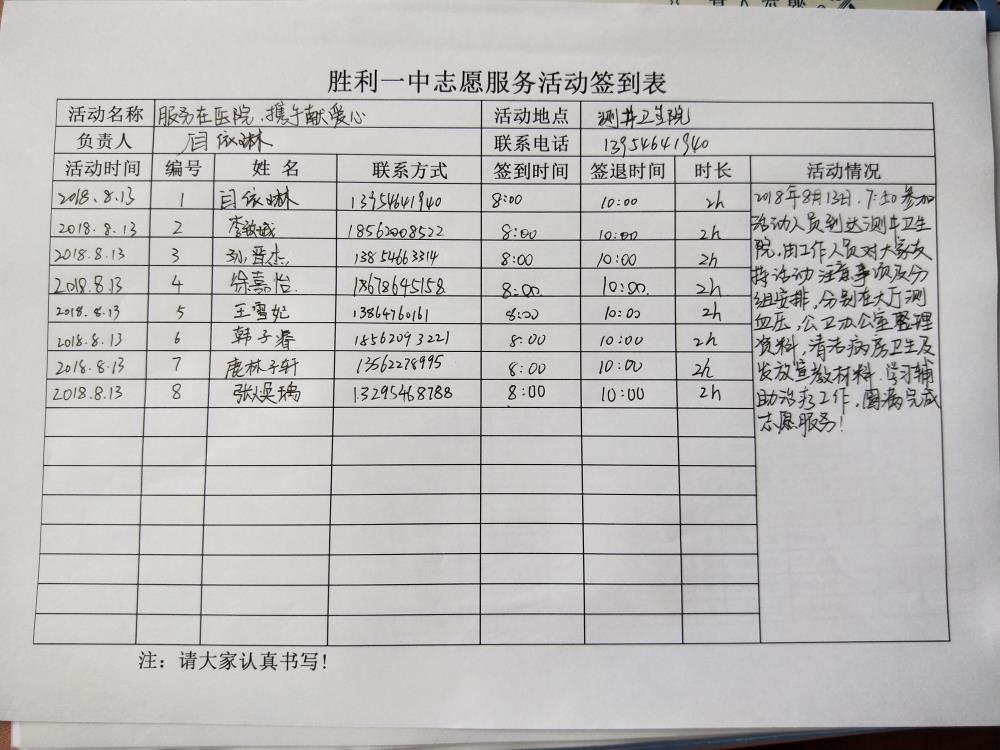 胜利一中志愿服务活动签到表
活动名称 服务在医院,携手献爱心 活动地点 测井卫生院
负责人 闫依琳 联系电话 13954641940
活动时间 编号 姓名 联系方式 签到时间 签退时间 时长 活动情况
2018.8.13 1 闫依琳 13954641940 8:00 10:00 2h
2018.8.13 2 18562008522 8:00 10:00 2h
2018.8.13 3 孙晋杰 13854663314 8:00 10:00 2h
2018.8.13 4 徐嘉怡 18678645158 8:00 10:00 2h
2018.8.13 5 王雪妃 13864760161 8:00 10:00 2h
2018.8.13 6 韩子睿 18562093221 8:00 10:00 2h
2018.8.13 7 鹿林子轩 13562278995 8:00 10:00 2h
2018.8.13 8 13295468788 8:00 10:00 2h
2018年8月13日,7:50参加
活动人员到达测井卫生
院,由工作人员对大家支
持活动注意事项及分
组安排,分别在大厅测
血压,公卫办公室整理
资料,清洁病房卫生及
发放宣教材料,学习辅
助治疗工作,圆满完成
志愿服务!
注:请大家认真书写!